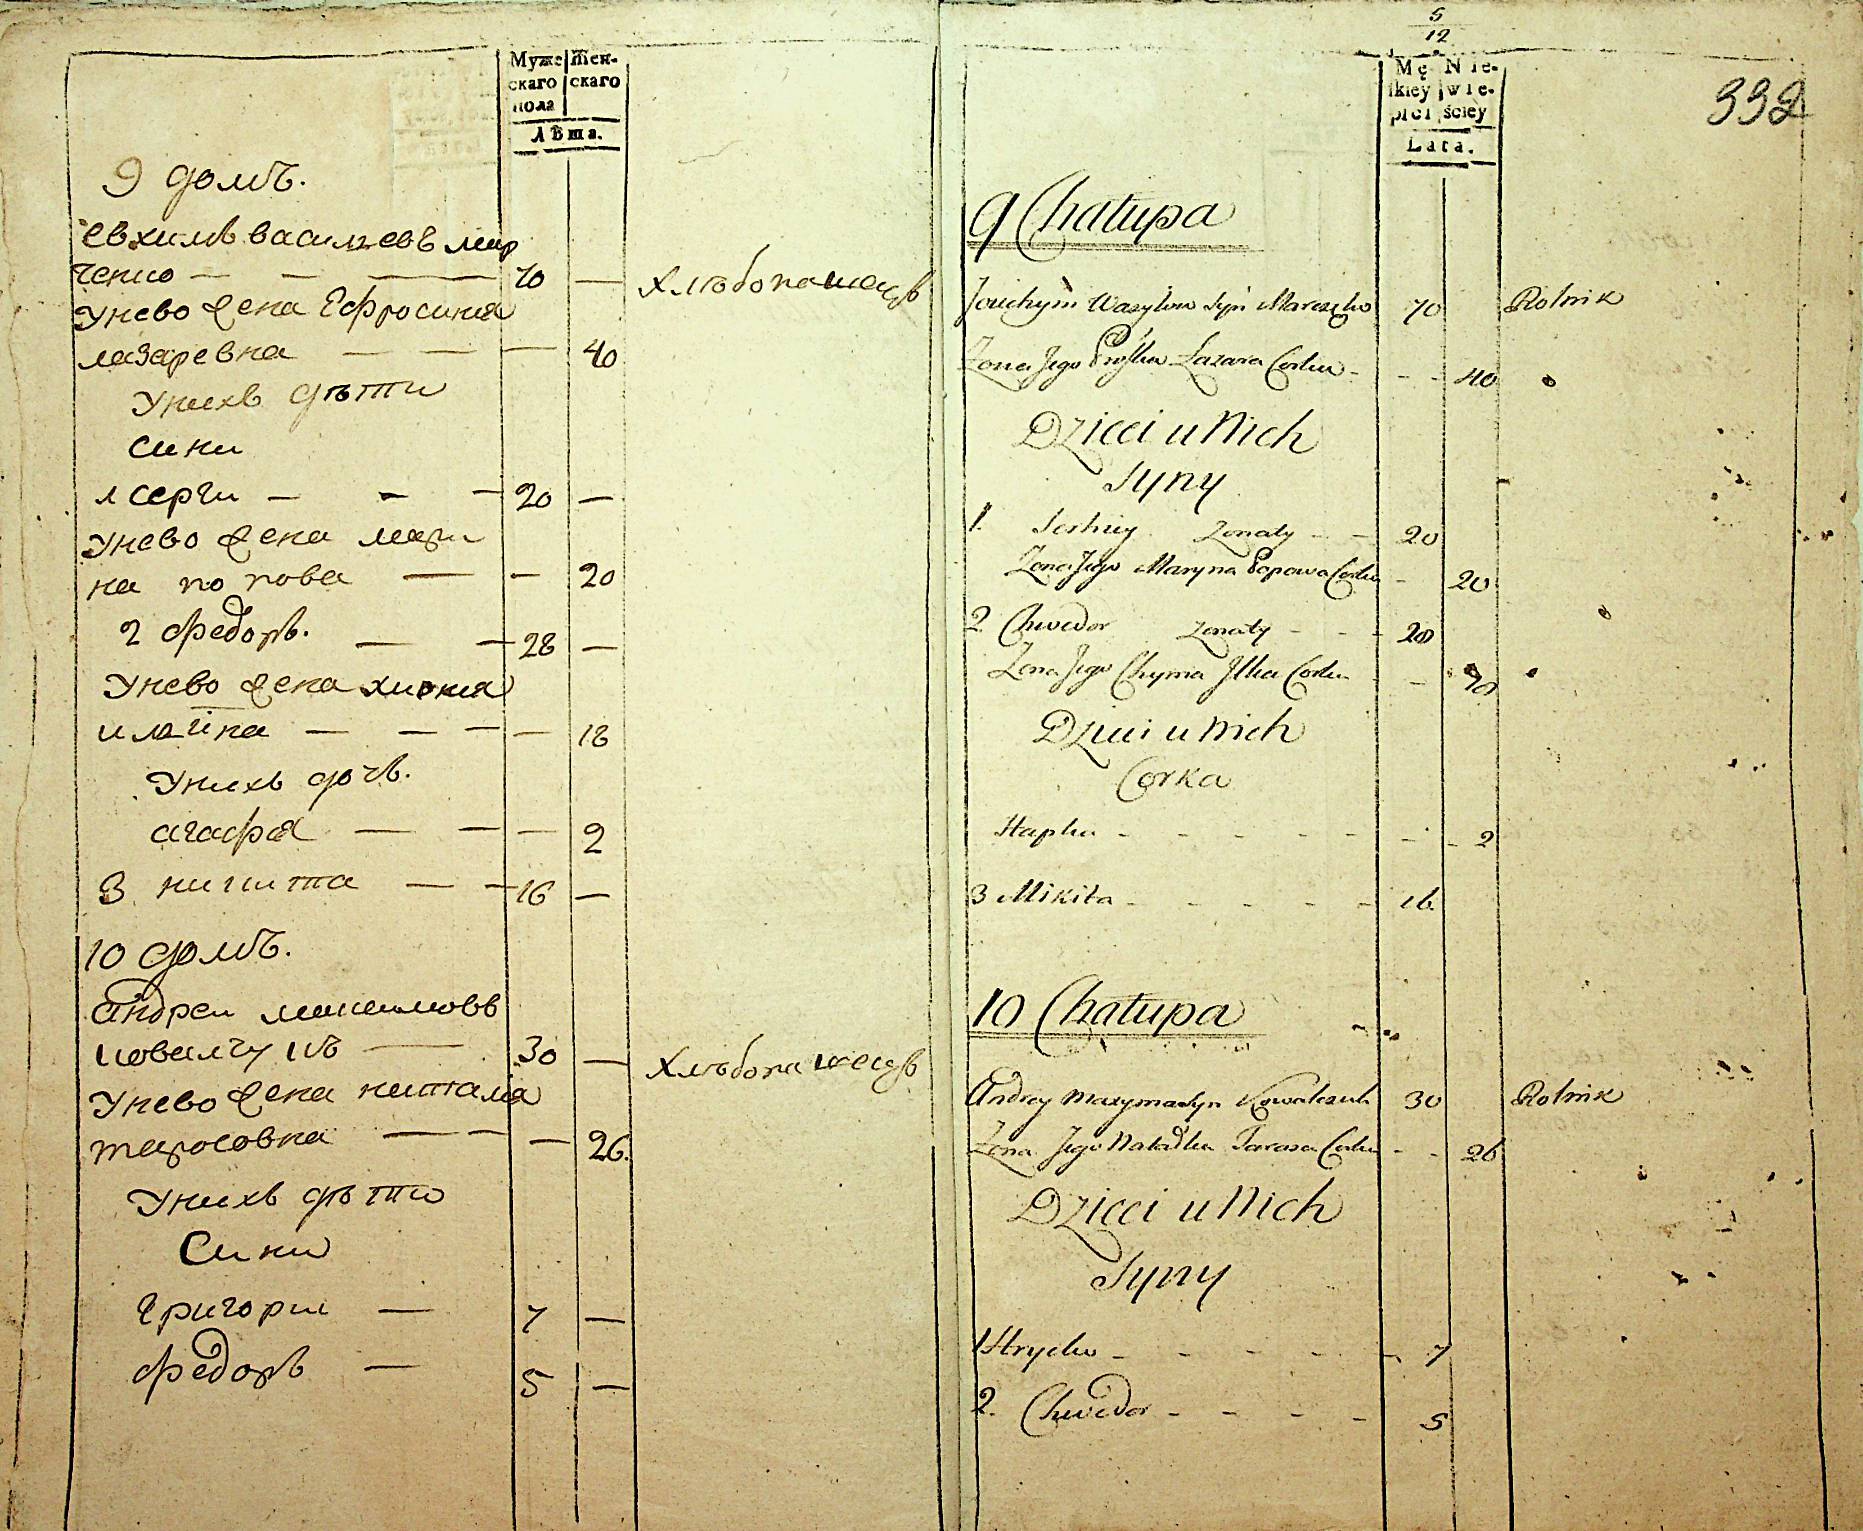 Муже скаго пола
Жен- скаго
Лѣта.
9 домъ.
евхимъ васильевъ мар
ченко — — — 70 — хлѣбопашецъ
унево жена Ефросиния
лазаревна — — — 40
унихъ дѣти
сини
1 серги — - — 20 —
унево жена мари
на попова — — 20
2 федоръ. — — 28 —
унево жена химия
илїйна — — — — 18
унихъ дочь.
агафия — — — 2
3 никита — — 16 —
10 домъ.
андреи максимовъ
ковалчукъ — 30 — хлѣбопашецъ
унево жена наталия
тарасовна — — — 26.
унихъ дѣти
сини
григории — 7 —
федоръ — 5 —
5
12
Mę skiey płci
Nie- wie- ściey
Lata.
332
9 Chałupa
Jouchym Wasylow Syn Marczęko 70 Rolnik
Zona Jego Proska Lazara Corka - - - 40
Dzieci u Nich
Syny
1. Serhiey Zonaty - - 20
Zona Jego Maryna Popowa Corka - 20
2. Chwedor Zonaty - - - 28
Zona Jego Chyma Jlka Corka - -
Dzieci u Nich
Corka
Hapka - - - - - - - - 2
3 Mikita - - - - - 16
10 Chałupa
Andrey Maxyma Syn Kowalczuk 30 Rolnik
Zona Jego Natalka Tarasa Corka - - 26
Dzieci u Nich
Syny
1 Hrycko - - - - - 7
2. Chwedor - - - - 5